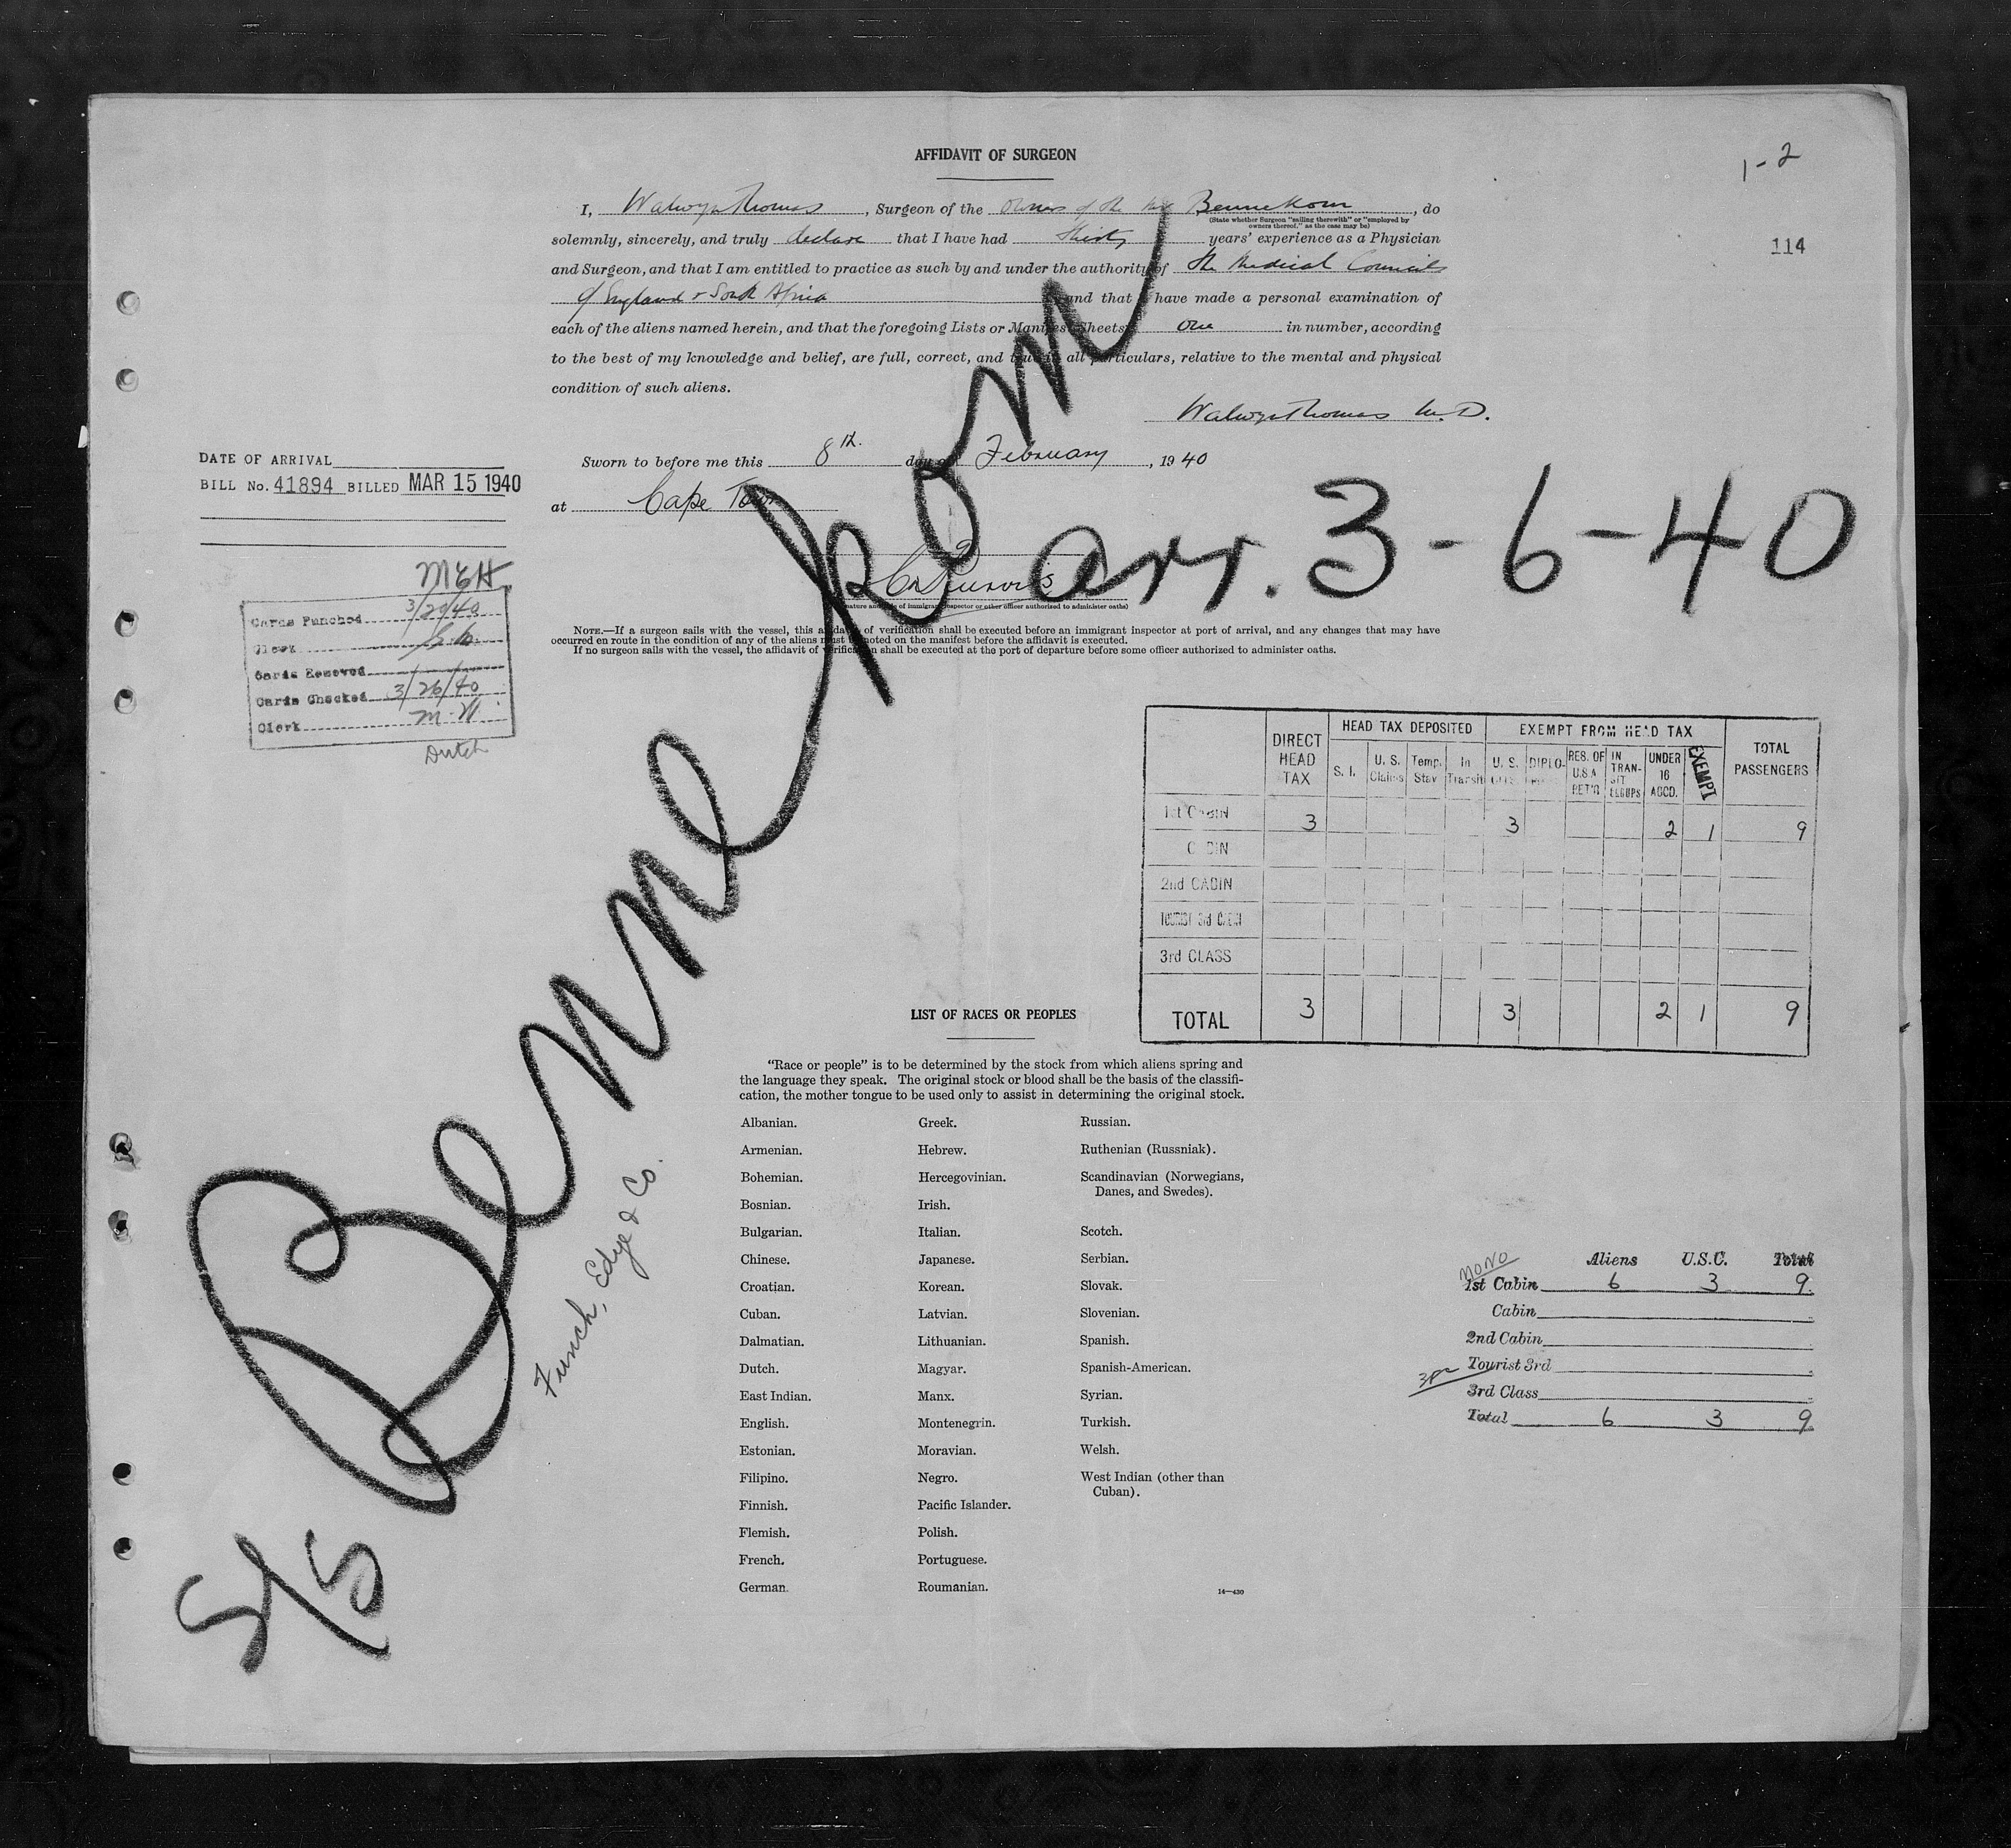 AFFIDAVIT OF SURGEON
1-2
114
I, Walwyn Thomas, Surgeon of the owners of the Bennekom, do
(State whether Surgeon "sailing therewith" or "employed by
owners thereof," as the case may be)
solemnly, sincerely, and truly declare that I have had thirty years' experience as a Physician
and Surgeon, and that I am entitled to practice as such by and under the authority of the Medical Councils
of England & South Africa and that I have made a personal examination of
each of the aliens named herein, and that the foregoing Lists or Manifest Sheets, one in number, according
to the best of my knowledge and belief, are full, correct, and true in all particulars, relative to the mental and physical
condition of such aliens.
Walwyn Thomas M.D.
Sworn to before me this 8th. day of February, 1940
at Cape Town
(Signature and title of immigrant inspector or other officer authorized to administer oaths)
NOTE.—If a surgeon sails with the vessel, this affidavit of verification shall be executed before an immigrant inspector at port of arrival, and any changes that may have
occurred en route in the condition of any of the aliens must be noted on the manifest before the affidavit is executed.
If no surgeon sails with the vessel, the affidavit of verification shall be executed at the port of departure before some officer authorized to administer oaths.
DATE OF ARRIVAL
BILL No. 41894 BILLED MAR 15 1940
MEH
Cards Punched 3/20/40
Clerk
Cards Removed
Cards Checked 3/26/40
Clerk M.H.
Dutch
S/S Bennekom
arr. 3-6-40
Funch, Edye & Co.
DIRECT HEAD TAX HEAD TAX DEPOSITED EXEMPT FROM HEAD TAX TOTAL PASSENGERS
S. I. U. S. Claims Temp. Stay In Transit U. S. CITS. DIPLO- RES. OF U.S.A RET'G IN TRAN- SIT UNDER 16 ACCD. EXEMPT
1st CABIN 3 3 2 1 9
CABIN
2nd CABIN
TOURIST 3rd CABIN
3rd CLASS
TOTAL 3 3 2 1 9
LIST OF RACES OR PEOPLES
"Race or people" is to be determined by the stock from which aliens spring and
the language they speak. The original stock or blood shall be the basis of the classifi-
cation, the mother tongue to be used only to assist in determining the original stock.
Albanian.
Armenian.
Bohemian.
Bosnian.
Bulgarian.
Chinese.
Croatian.
Cuban.
Dalmatian.
Dutch.
East Indian.
English.
Estonian.
Filipino.
Finnish.
Flemish.
French.
German.
Greek.
Hebrew.
Hercegovinian.
Irish.
Italian.
Japanese.
Korean.
Latvian.
Lithuanian.
Magyar.
Manx.
Montenegrin.
Moravian.
Negro.
Pacific Islander.
Polish.
Portuguese.
Roumanian.
Russian.
Ruthenian (Russniak).
Scandinavian (Norwegians,
Danes, and Swedes).
Scotch.
Serbian.
Slovak.
Slovenian.
Spanish.
Spanish-American.
Syrian.
Turkish.
Welsh.
West Indian (other than
Cuban).
14—430
MONO
Aliens U.S.C. Total
1st Cabin 6 3 9
Cabin
2nd Cabin
Tourist 3rd
3rd Class
Total 6 3 9